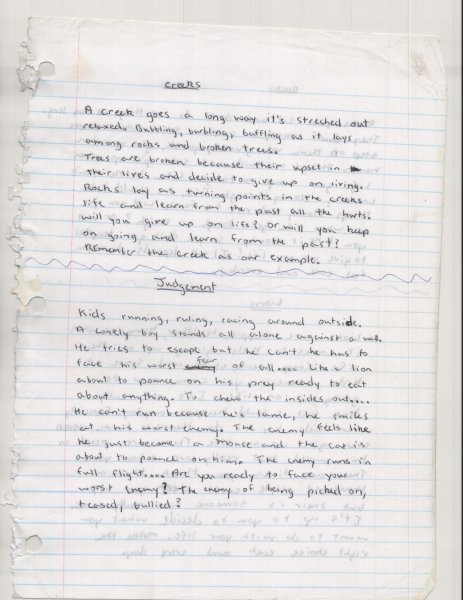 Creeks
A creek goes a long way it's streched out
relaxed. Bubbling, burbling, baffling as it lays
among rocks and broken trees.
Trees are broken because their upset in
their lives and decide to give up on living.
Rocks lay as turning points in the creeks
life and learn from the past all the hurts.
will you give up on life? or will you keep
on going and learn from the past?
REmember the creek as our example.
Judgement
Kids running, ruling, racing around outside.
A lonely boy stands all alone against a wall.
He tries to escape but he can't he has to
face his worst fear of all.... Like a lion
about to pounce on his prey ready to eat
about anything. To chew the insides out....
He can't run because he's lame, he smiles
at his worst enemy. The enemy feels like
he just became a mouse and the cat is
about to pounce on him. The enemy runs in
full flight.... Are you ready to face your
worst enemy? The enemy of being picked on,
teased, bullied?